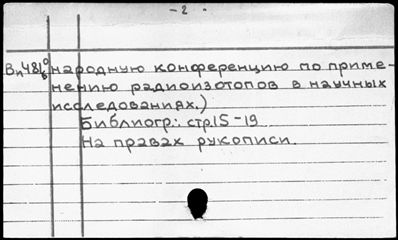 - 2 -
народную конференцию по приме-
нению радиоизотопов в научных
исследованиях.)
Библиогр.: стр15-19
На правах рукописи.